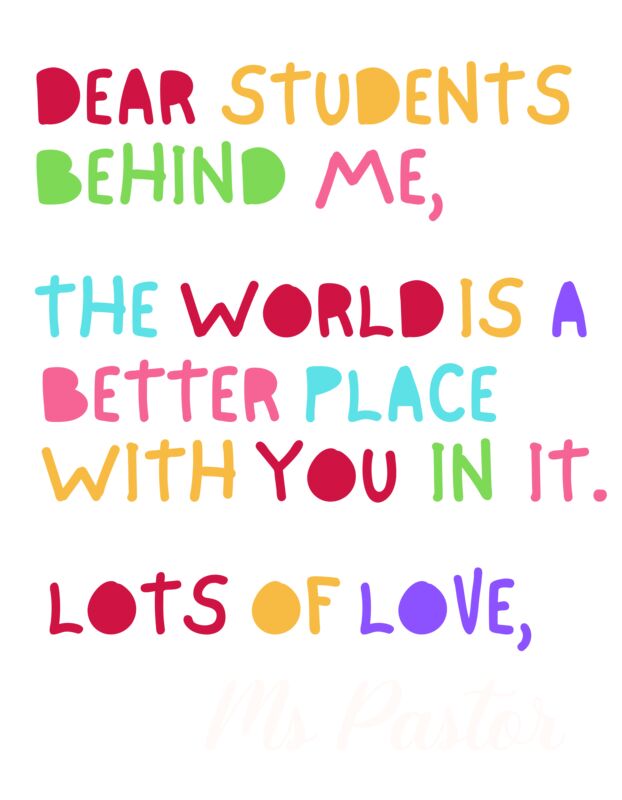 DEAR STUDENTS
BEHIND ME,
THE WORLD IS A
BETTER PLACE
WITH YOU IN IT.
LOTS OF LOVE,
Ms Pastor